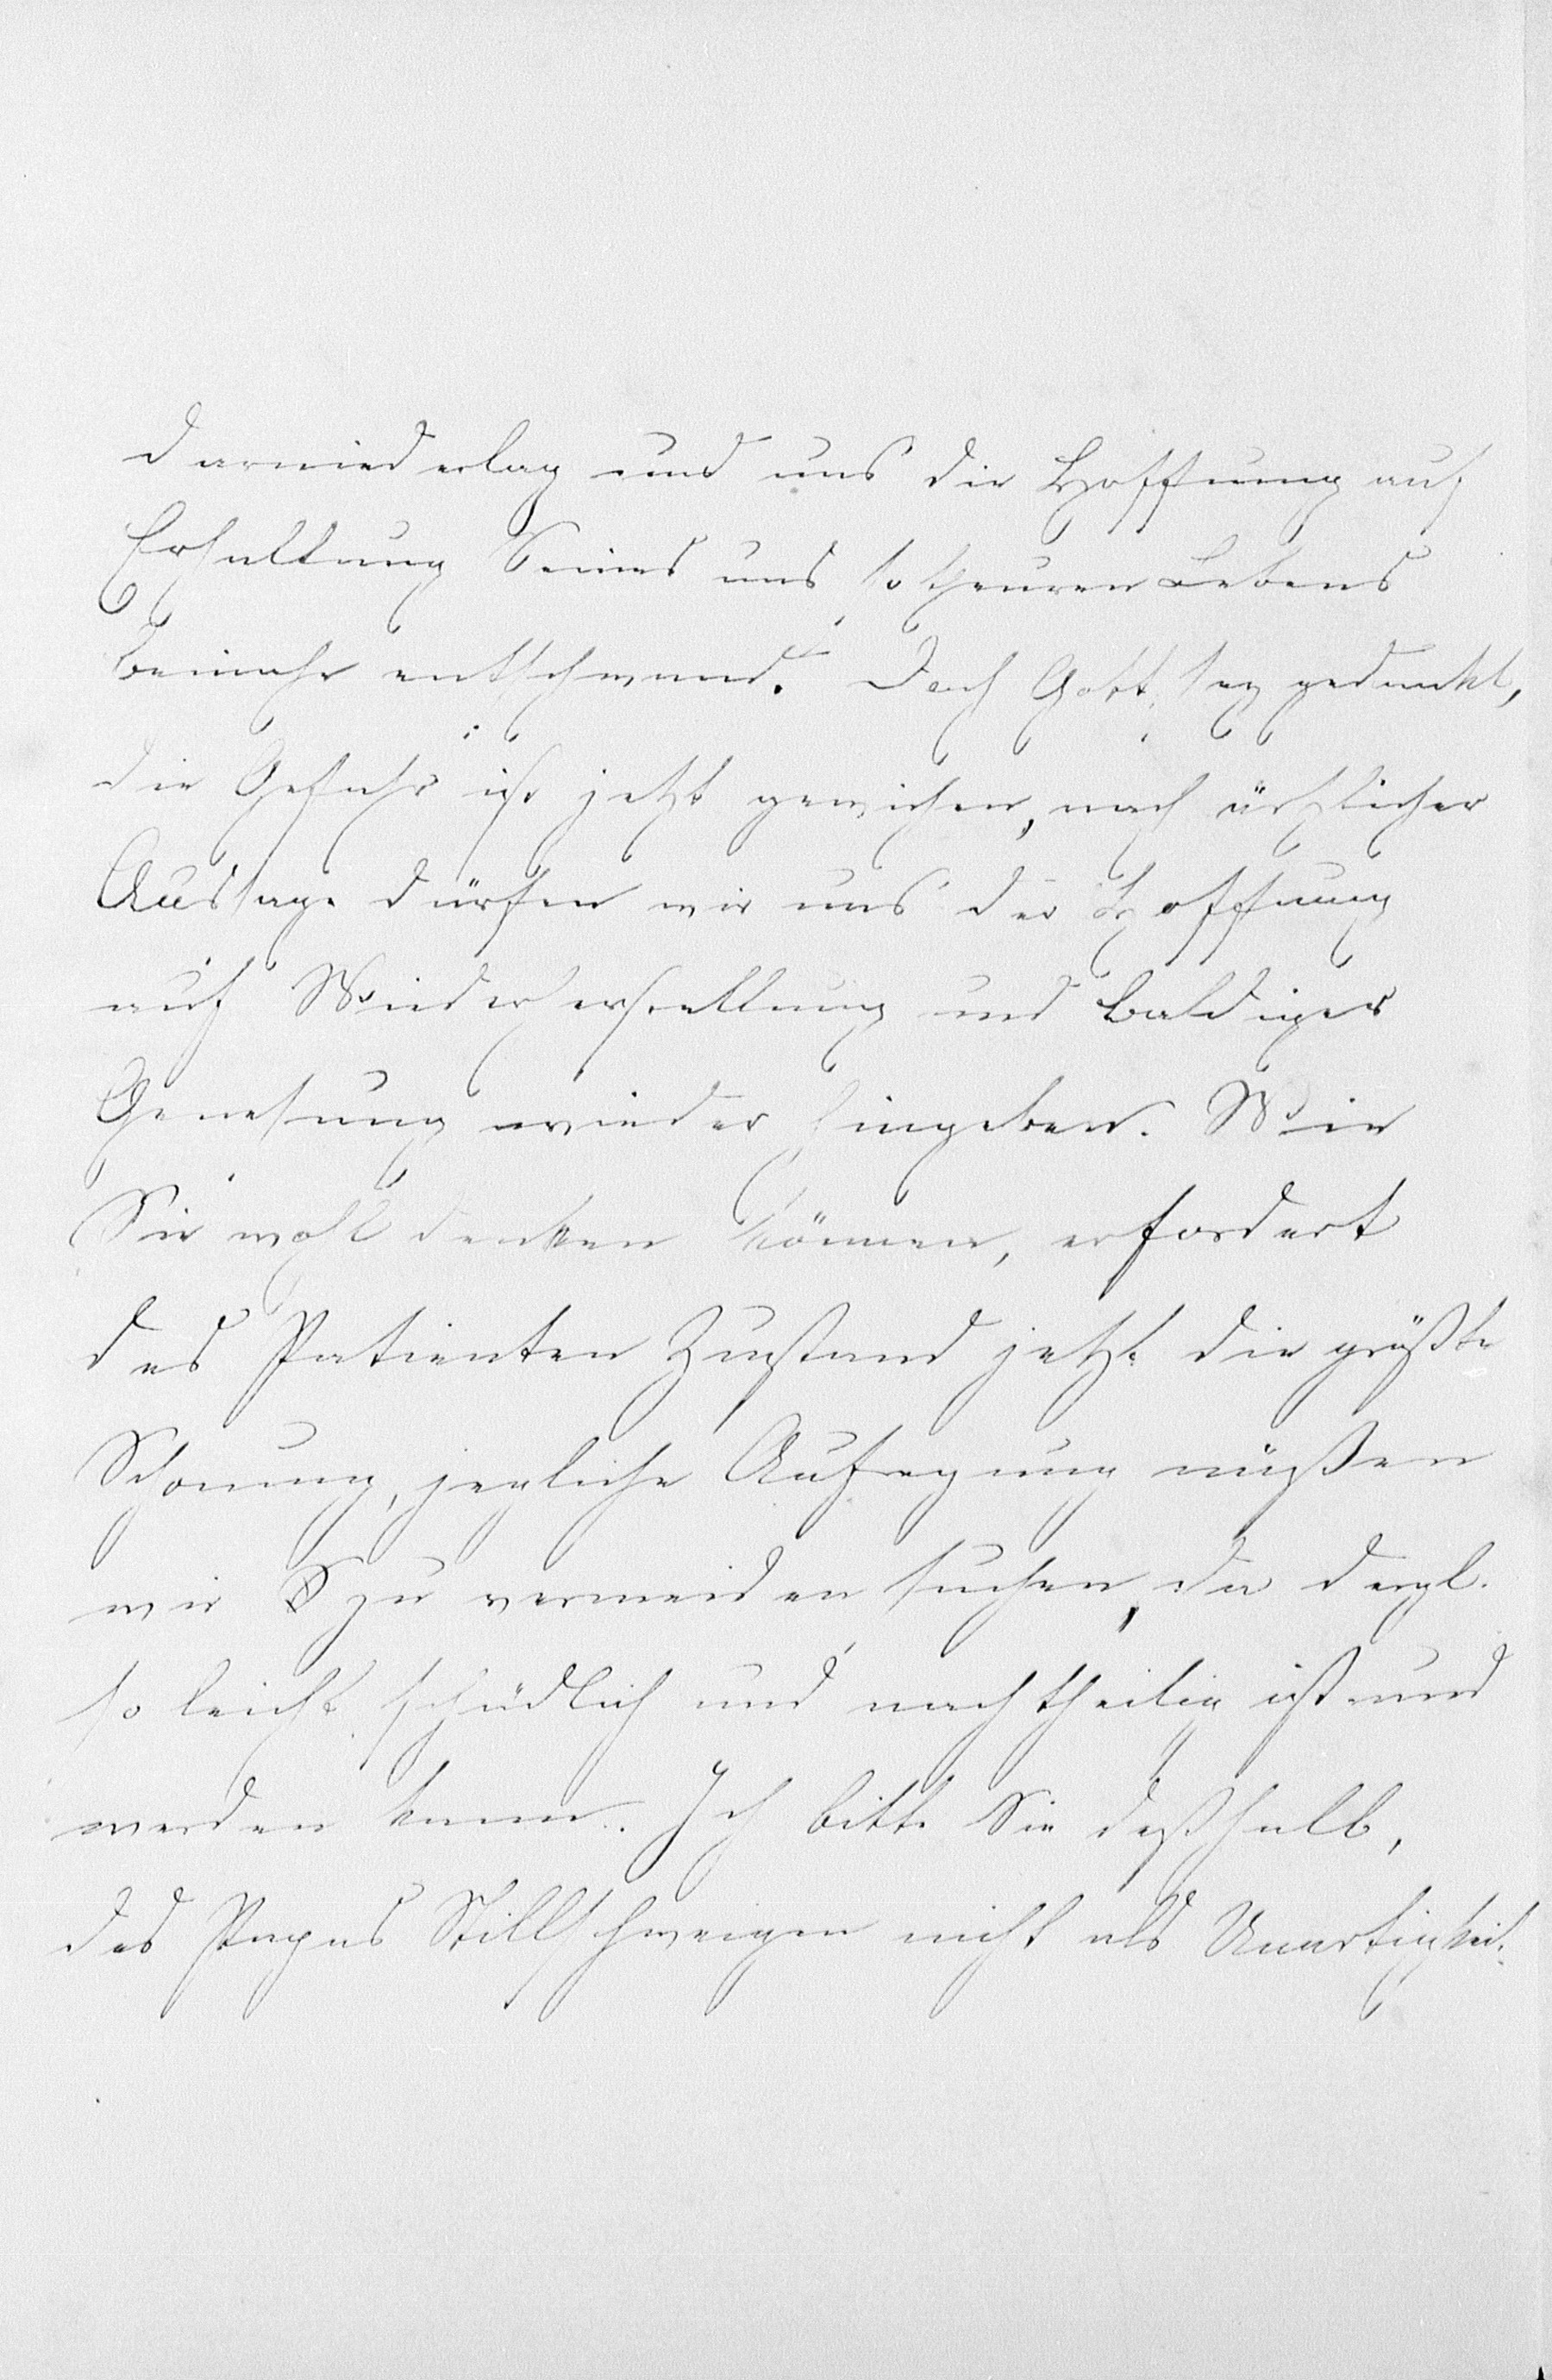 darniederlag und uns die Hoffnung auf
Erhaltung Seines uns so theuren Lebens
beinahe entschwand. Doch Gott sey gedankt,
die Gefahr ist jetzt gewichen, nach ärztlicher
Aussage dürfen wir uns der Hoffnung
auf Wiederherstellung und baldiger
Genesung wieder hingeben. Wie
Sie wohl denken können, erfordert
des Patienten Zustand jetzt die größte
Schonung, jegliche Aufregung müßen
wir zu vermeiden suchen, da dergl.
so leicht schädlich und nachtheilig ist und
werden kann. Ich bitte Sie deßhalb,
des Papas Stillschweigen nicht als Unartigkeit